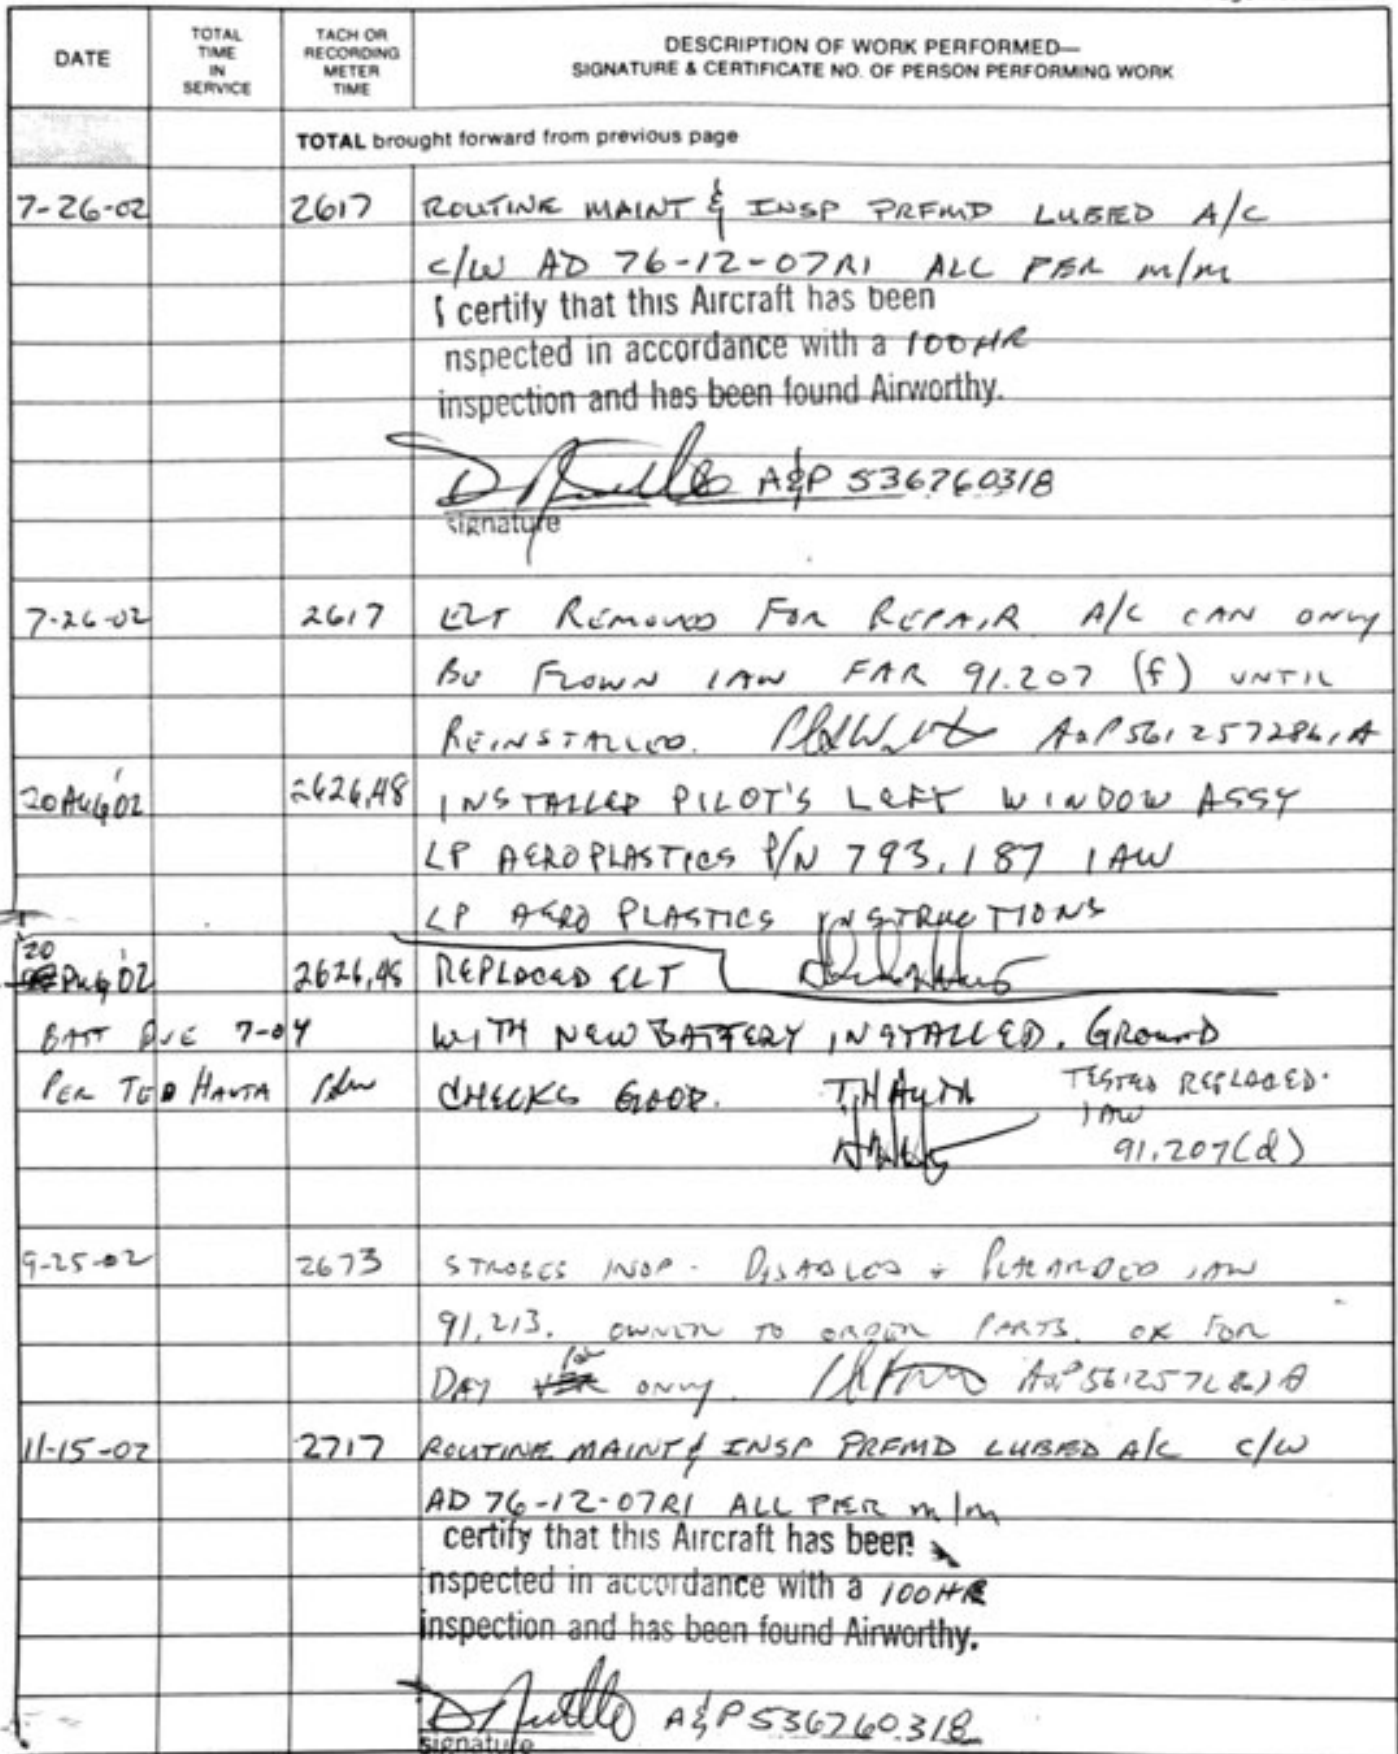 DATE
TOTAL TIME IN SERVICE
TACH OR RECORDING METER TIME
DESCRIPTION OF WORK PERFORMED—
SIGNATURE & CERTIFICATE NO. OF PERSON PERFORMING WORK
TOTAL brought forward from previous page
7-26-02 2617 ROUTINE MAINT & INSP PRFMD LUBED A/C
C/W AD 76-12-07R1 ALL PER m/m
I certify that this Aircraft has been
nspected in accordance with a 100 HR
inspection and has been found Airworthy.
A&P 536760318
signature
7-26-02 2617 ELT REMOVED FOR REPAIR A/C CAN ONLY
BE FLOWN IAW FAR 91.207 (f) UNTIL
REINSTALLED. A&P 561257286 IA
20 AUG '02 2626.48 INSTALLED PILOT'S LEFT WINDOW ASSY
LP AEROPLASTICS P/N 793.187 IAW
LP AERO PLASTICS INSTRUCTIONS
20 Aug '02 2626.48 REPLACED ELT
BATT DUE 7-04 WITH NEW BATTERY INSTALLED. GROUND
PER TED HAUTA CHECKS GOOD. T. HAUTA TESTED REPLACED.
IAW
91.207(d)
9-25-02 2673 STROBES INOP. DISABLED + PLACARDED IAW
91.213. OWNER TO ORDER PARTS. OK FOR
DAY ONLY. A&P 561257286 IA
11-15-02 2717 ROUTINE MAINT & INSP PRFMD LUBED A/C C/W
AD 76-12-07R1 ALL PER m/m
certify that this Aircraft has been
nspected in accordance with a 100 HR
inspection and has been found Airworthy.
A&P 536760318
signature